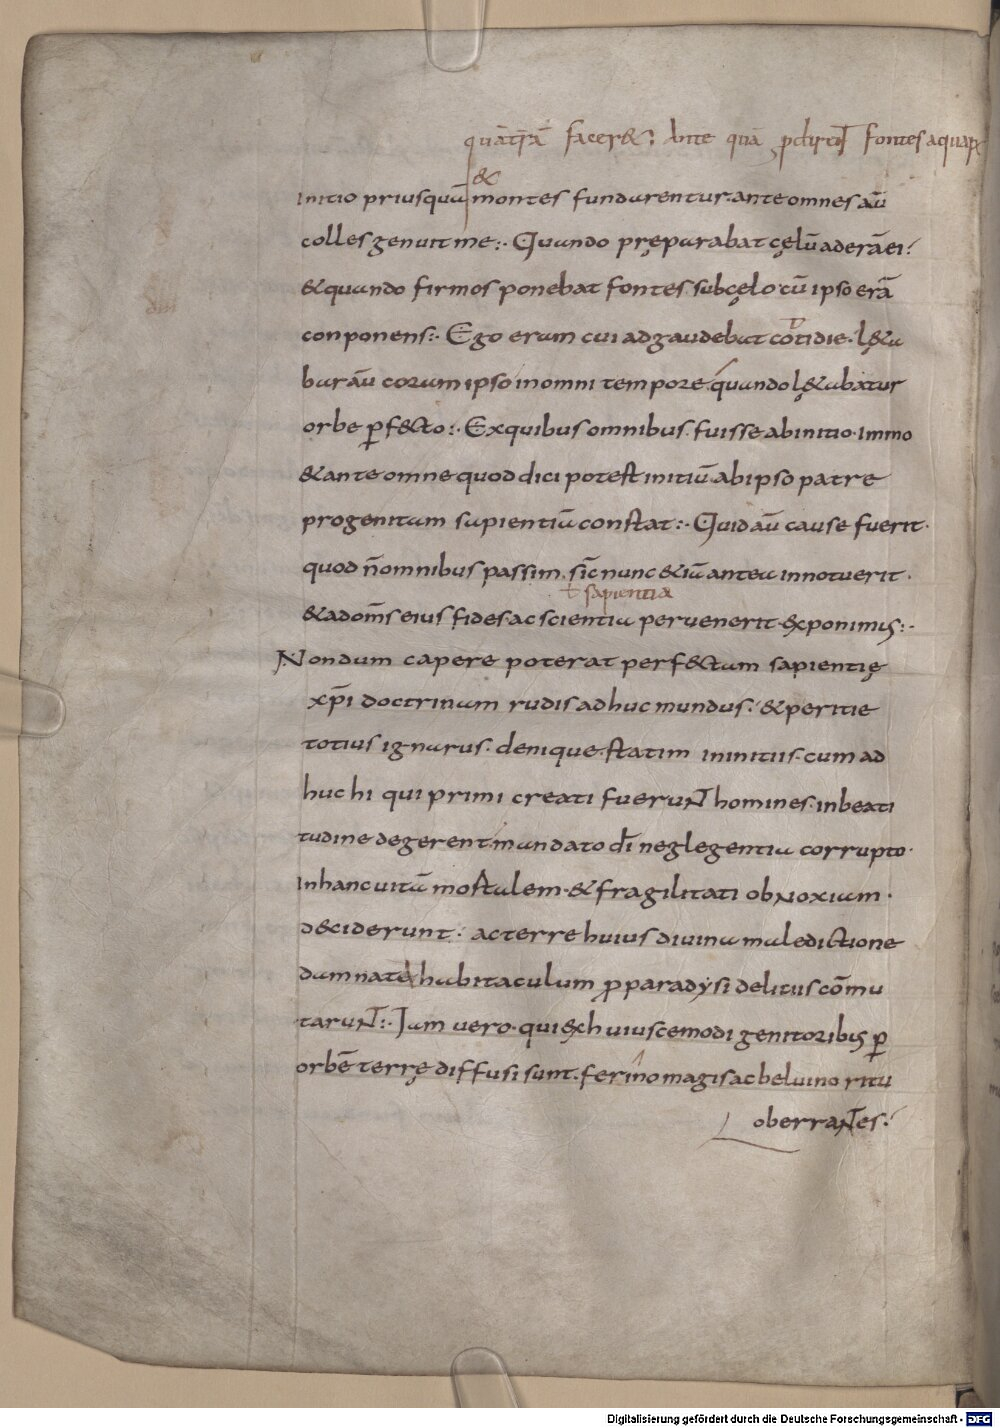 quātr̄ā facer&: Ante quā ꝓdirēt fontes aquarꝝ
&
initio priusquā montes fundarentur. ante omnes aū
colles genuit me:· Quando pręparabat cęlū aderā ei:
& quando firmos ponebat fontes sub cęlo cū ipso erā
conponens:· Ego eram cui adgaudebat cōtidie· lę&a
bar aū coram ipso in omni tempore· quando lę&abatur
orbe ꝑf&cto:· Ex quibus omnibus fuisse ab initio· immo
& ante omne quod dici potest initiū ab ipso patre
progenitam sapientiā constat:· Quid aū cause fuerit·
quod n̄ omnibus passim sic̄ nunc &iā antea innotuerit·
ł sapientia
& ad om̄s eius fides· ac scientia peruenerit· exponimus:·
Nondum capere poterat perf&ctam sapientię
xp̄i doctrinam rudis adhuc mundus: & peritie
totius ignarus· denique statim in initiis· cum ad
huc hi qui primi creati fuerunt homines· in beati
tudine degerent· mandato dī neglegentia corrupto·
In hanc uitā mortalem· & fragilitati obnoxiam·
d&ciderunt· ac terre huius diuina maledictione
damnate habitaculum ꝓ paradysi delitiis cōmu
tarunt:· Iam uero· qui ex huiuscemodi genitoribus ꝑ
orbē terrę diffusi sunt· ferino magis ac beluino ritu
oberrantes·
dm̄
Digitalisierung gefördert durch die Deutsche Forschungsgemeinschaft - DFG